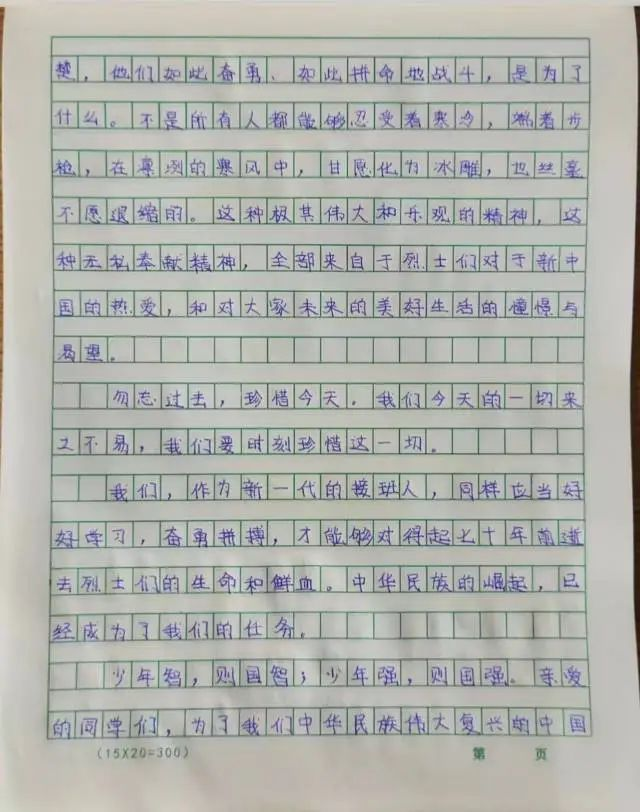 楚，他们如此奋勇、如此拼命地战斗，是为了
什么。不是所有人都能够忍受着寒冷，端着步
枪，在凛冽的寒风中，甘愿化为冰雕，也丝毫
不愿退缩的。这种极其伟大和乐观的精神，这
种无私奉献精神，全部来自于烈士们对于新中
国的热爱，和对大家未来的美好生活的憧憬与
渴望。
勿忘过去，珍惜今天。我们今天的一切来
之不易，我们要时刻珍惜这一切。
我们，作为新一代的接班人，同样应当好
好学习，奋勇拼搏，才能够对得起七十年前逝
去烈士们的生命和鲜血。中华民族的崛起，已
经成为了我们的任务。
少年智，则国智；少年强，则国强。亲爱
的同学们，为了我们中华民族伟大复兴的中国
（15X20=300） 第 页